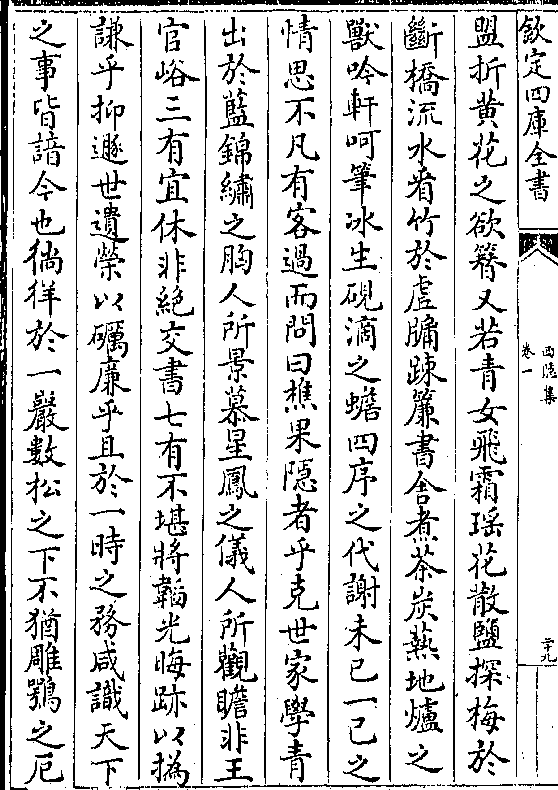 欽定四庫全書
西隠集
卷一
二十九
盟折黄花之欲簪又若青女飛霜瑶花散鹽探梅於
斷橋流水看竹於虚牖踈簾書舎煮茶炭爇地爐之
獸吟軒呵筆冰生硯滴之蟾四序之代謝未已一已之
情思不凡有客過而問曰樵果隠者乎克世家學青
出於藍錦繡之胸人所景慕星鳳之儀人所觀瞻非王
官峪三有宜休非絶交書七有不堪將韜光晦跡以撝
謙乎抑遯世遺榮以礪廉乎且於一時之務咸識天下
之事皆諳今也徜徉於一巖數松之下不猶雕鶚之厄